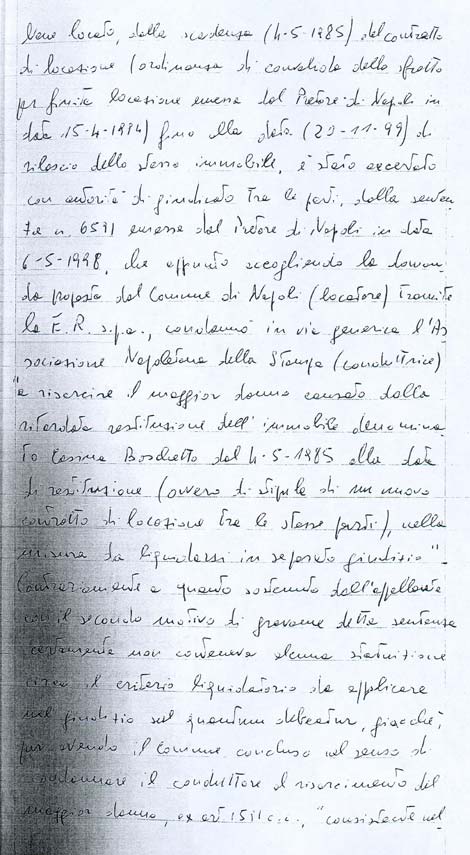 bene locato, dalla scadenza (4-5-1985) del contratto
di locazione (ordinanza di convalida dello sfratto
per finita locazione emessa dal Pretore di Napoli in
data 15-4-1984) fino alla data (29-11-99) di
rilascio dello stesso immobile, è stato accertato
con autorità di giudicato tra le parti, dalla senten
za n. 6591 emessa dal Pretore di Napoli in data
6-5-1998, che appunto accogliendo la doman
da proposta dal Comune di Napoli (locatore) tramite
la F.R. s.p.a., condannò in via generica l'As
sociazione Napoletana della Stampa (conduttrice)
"a risarcire il maggior danno causato dalla
ritardata restituzione dell'immobile denomina
to Casina Boschetto dal 4-5-1985 alla data
di restituzione (ovvero di stipula di un nuovo
contratto di locazione tra le stesse parti), nella
misura da liquidarsi in separato giudizio".
Contrariamente a quanto sostenuto dall'appellante
con il secondo motivo di gravame detta sentenza
certamente non conteneva alcuna statuizione
circa il criterio liquidatorio da applicare
nel giudizio sul quantum debeatur, giacché,
pur avendo il Comune concluso nel senso di
condannare il conduttore al risarcimento del
maggior danno, ex art. 1591 c.c., "consistente nel